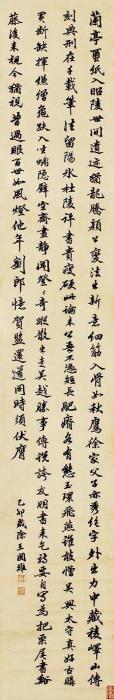 蘭亭繭紙入昭陵世間遺迹猶龍騰顏公變法出新意細筋入骨如秋鷹徐家父子亦秀絕字外出力中藏稜嶧山傳
刻典刑在千載筆法留陽冰杜陵評書貴瘦硬此論未公吾不憑短長肥瘠各有態玉環飛燕誰敢憎吳興太守真好古購
買斷缺揮縑繒龜趺入坐螭隱壁空齋晝靜聞登登奇蹤散出走吳越勝事傳說誇友朋書來乞詩要自寫為把栗尾書谿
藤後來視今猶視昔過眼百世如風燈他年劉郎憶賀監還道同時須伏膺
乙卯歲除王國維